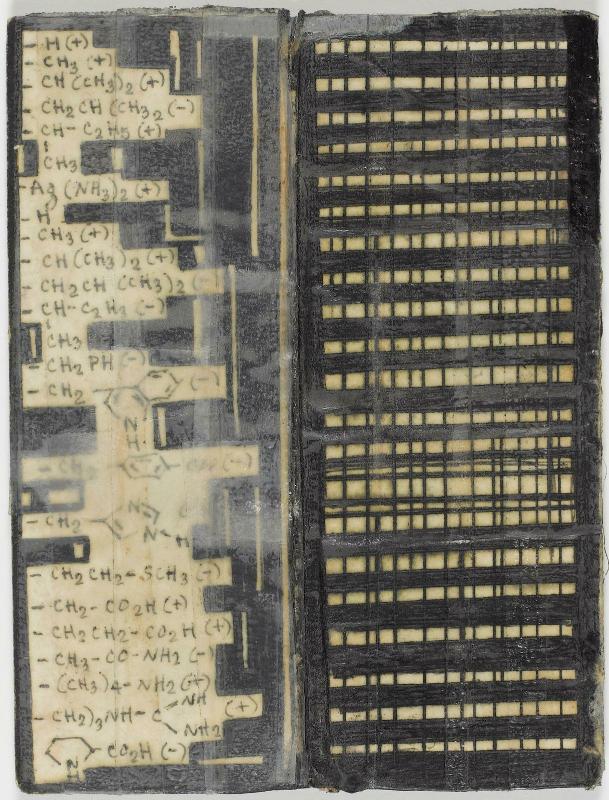 - H (+)
- CH3 (+)
- CH (CH3)2 (+)
- CH2 CH (CH3 2 (-)
- CH - C2H5 (+)
CH3
- Ag (NH3)2 (+)
- H
- CH3 (+)
- CH (CH3)2 (+)
- CH2 CH (CH3)2 (-)
- CH - C2H5 (-)
CH3
- CH2 PH (-)
- CH2 (-)
NH
- CH2 (-)
- CH2 N
N - H
- CH2 CH2 - SCH3 (-)
- CH2 - CO2H (+)
- CH2 CH2 - CO2 H (+)
- CH3 - CO - NH2 (-)
- (CH3)4 - NH2 (+)
- CH2)3 NH - C NH NH2 (+)
- CO2H (-)
NH